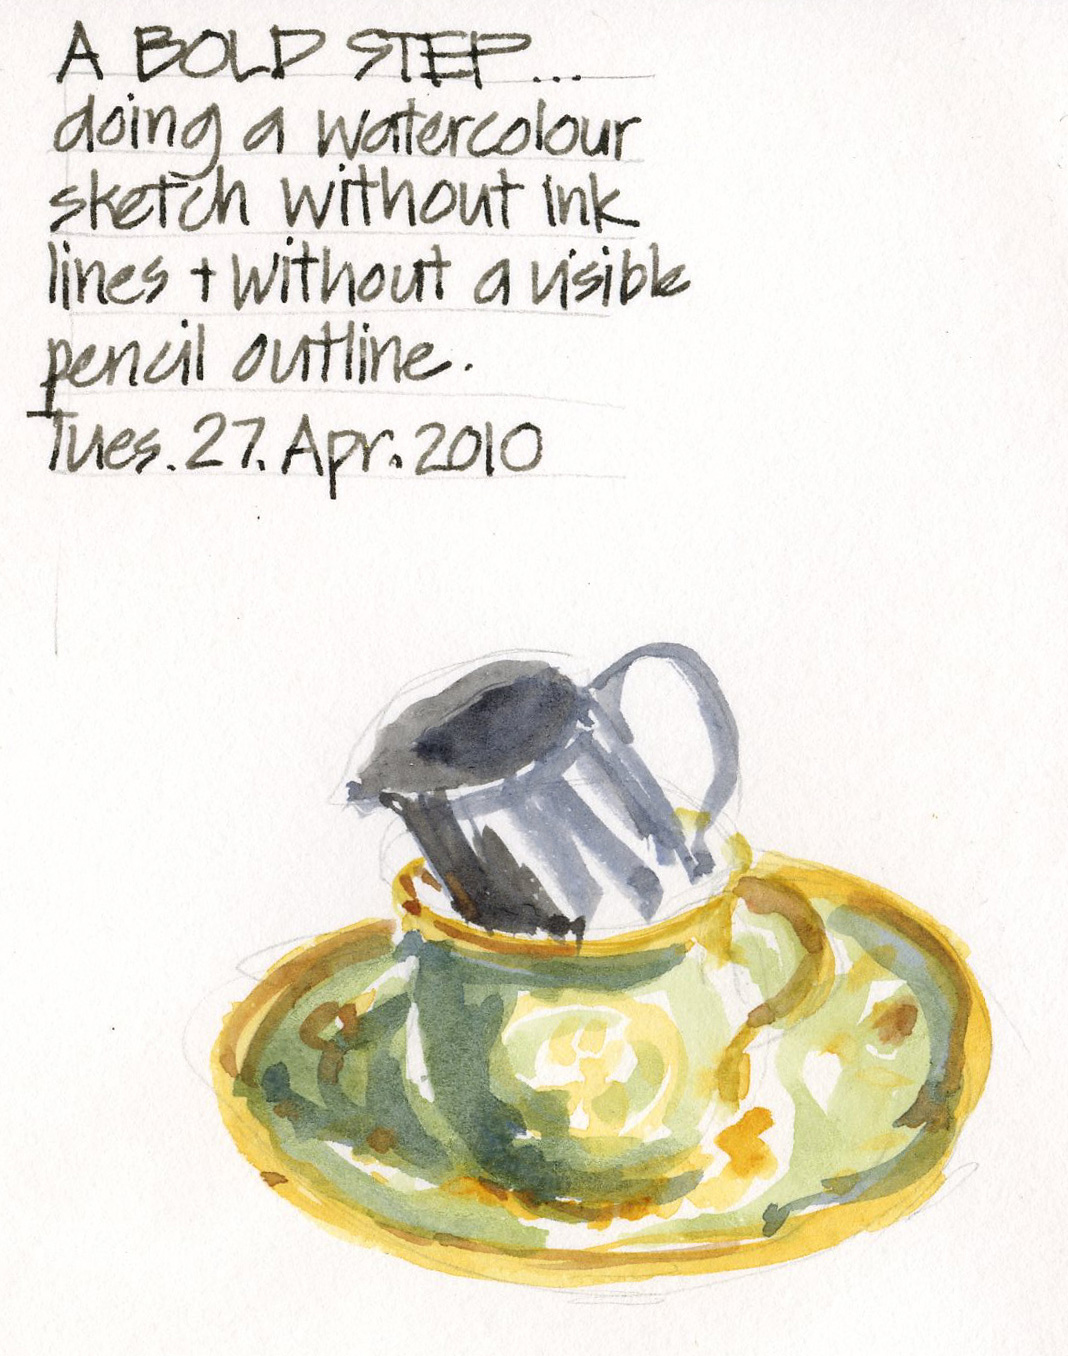 A BOLD STEP...
doing a watercolour
sketch without ink
lines + without a visible
pencil outline.
Tues. 27. Apr. 2010